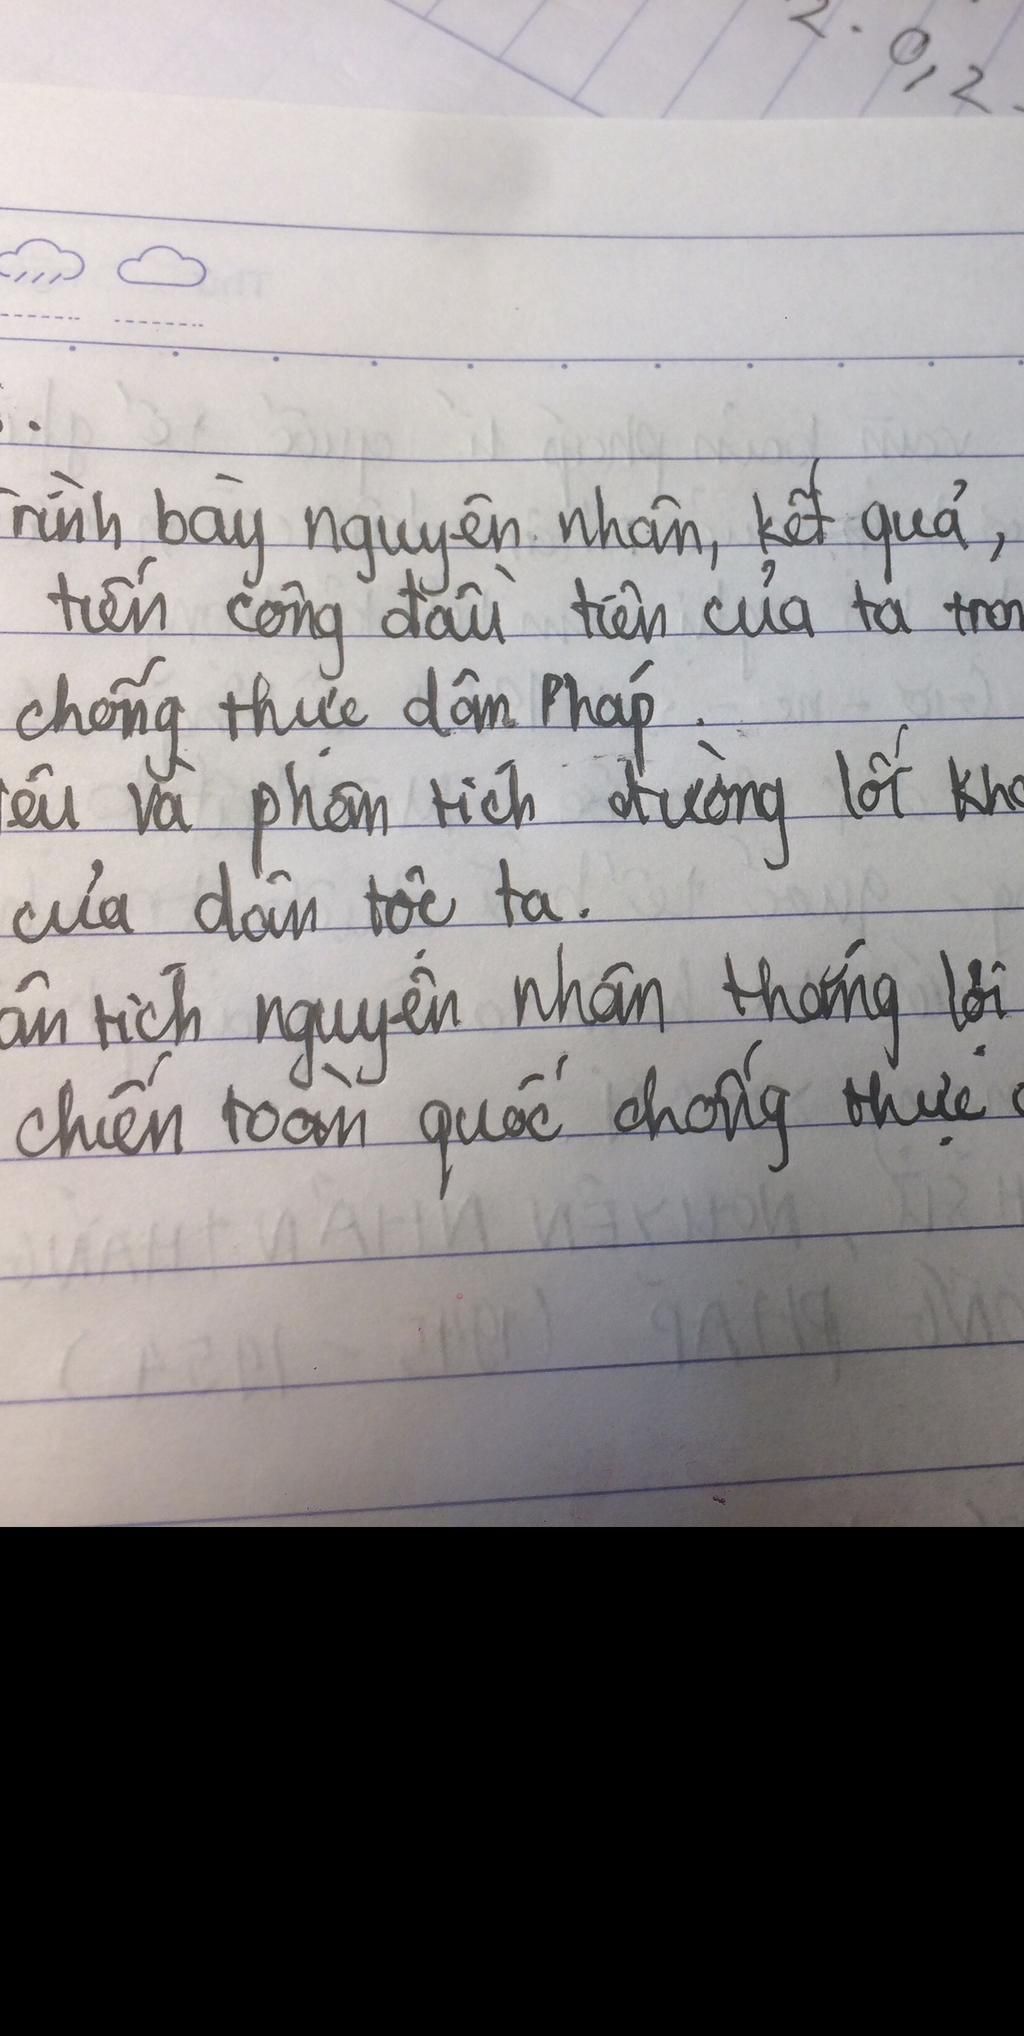 2. 0,2.
rình bày nguyên nhân, kết quả,
tiến công đầu tiên của ta tron
chống thực dân Pháp.
êu và phân tích đường lối khá
của dân tộc ta.
ân tích nguyên nhân thắng lợi
chiến toàn quốc chống thực